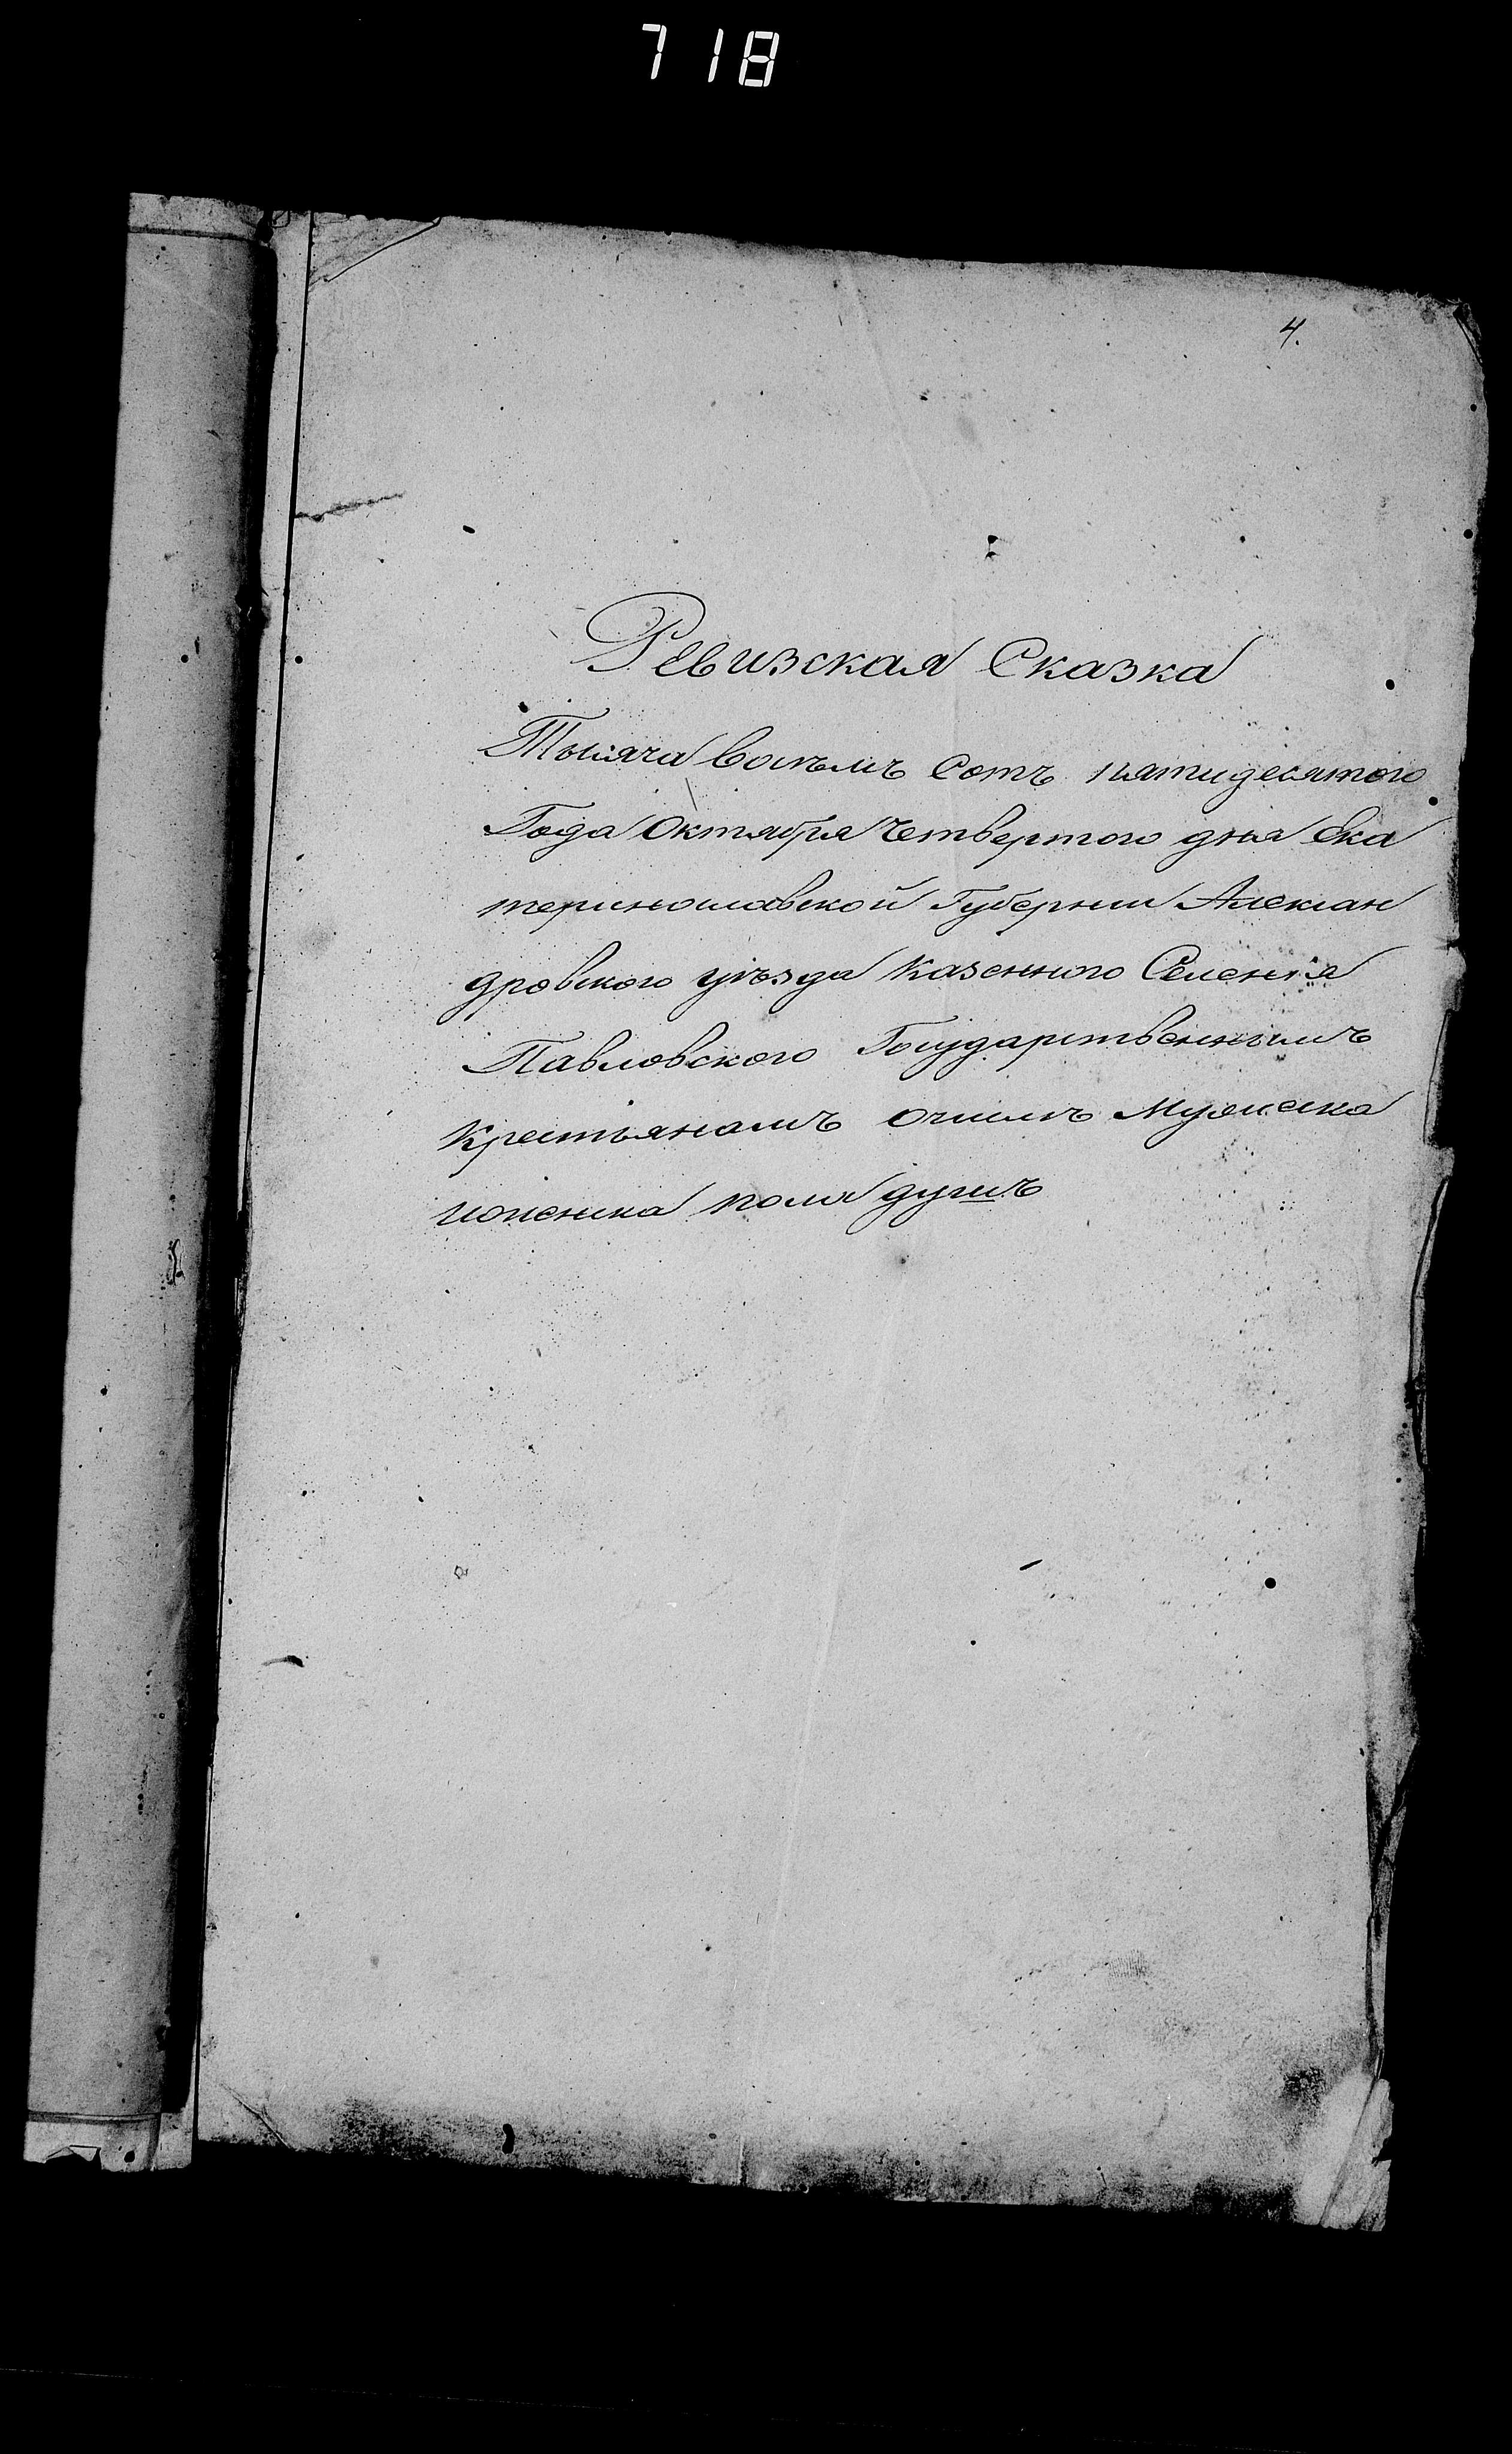 718
4.
Ревизская Сказка
Тысяча восемь Сотъ пятидесятого
Года Октября Четвертого дня Ека
теринославской Губернии Алексан
дровского уѣзда Казенного Селенія
Павловского Государственнымъ
Крестьянамъ Очислѣ Мужеска
иженска пола душъ